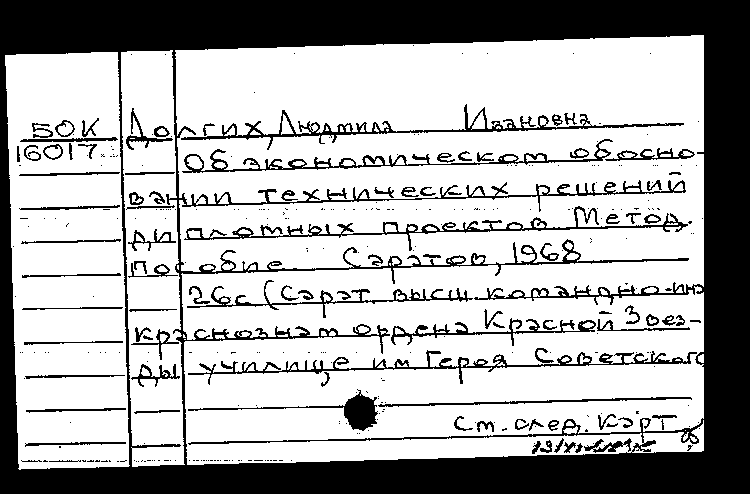 БОК Долгих, Людмила Ивановна
16017 Об экономическом обосно-
вании технических решений
дипломных проектов Метод.
пособие. Саратов, 1968
26с (Сарат. высш. командно-инж
краснознам ордена Красной Звез-
ды училище им Героя Советского
См. след. карт